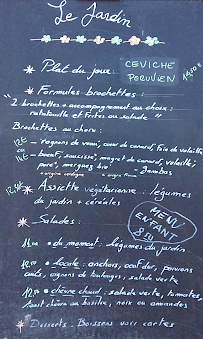 Le Jardin
Plat du jour: CEVICHE
PERUVIEN
Formules brochettes:
2 brochettes + accompagnement au choix:
ratatouille et frites ou salade "
Brochettes au choix:
12€ — Rognons de veau, cœur de canard, foie de volaille
ou
14€ — bœuf, saucisse, magret de canard, volaille,
porc, merguez bio Gambas
Assiette végétarienne: légumes
de jardin + céréales
MENU
ENFANT
8€
Salades:
du moment: légumes du jardin
locale: anchois, œuf dur, poivrons
cuits, oignons de toulouges, salade verte
chèvre chaud: salade verte, tomates,
chèvre au basilic, noix ou amandes
Desserts. Boissons voir cartes